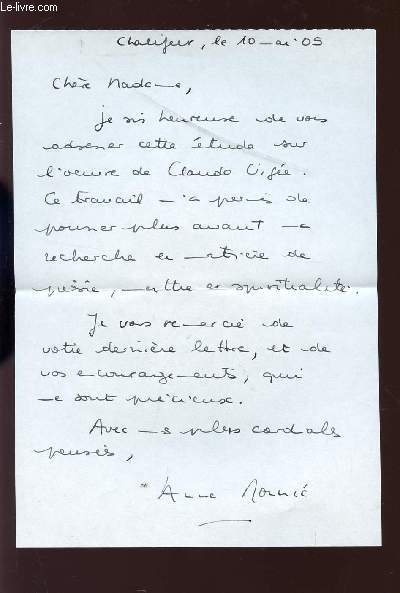 Le-livre.com
Chalifert, le 10 mai 05
Chère Madame,
Je suis heureuse de vous
adresser cette étude sur
l'oeuvre de Claude Vigée.
Ce travail m'a permis de
pousser plus avant ma
recherche en matière de
poésie, mythe et spiritualité.
Je vous remercie de
votre dernière lettre, et de
vos encouragements, qui
me sont précieux.
Avec mes plus cordiales
pensées,
Anne